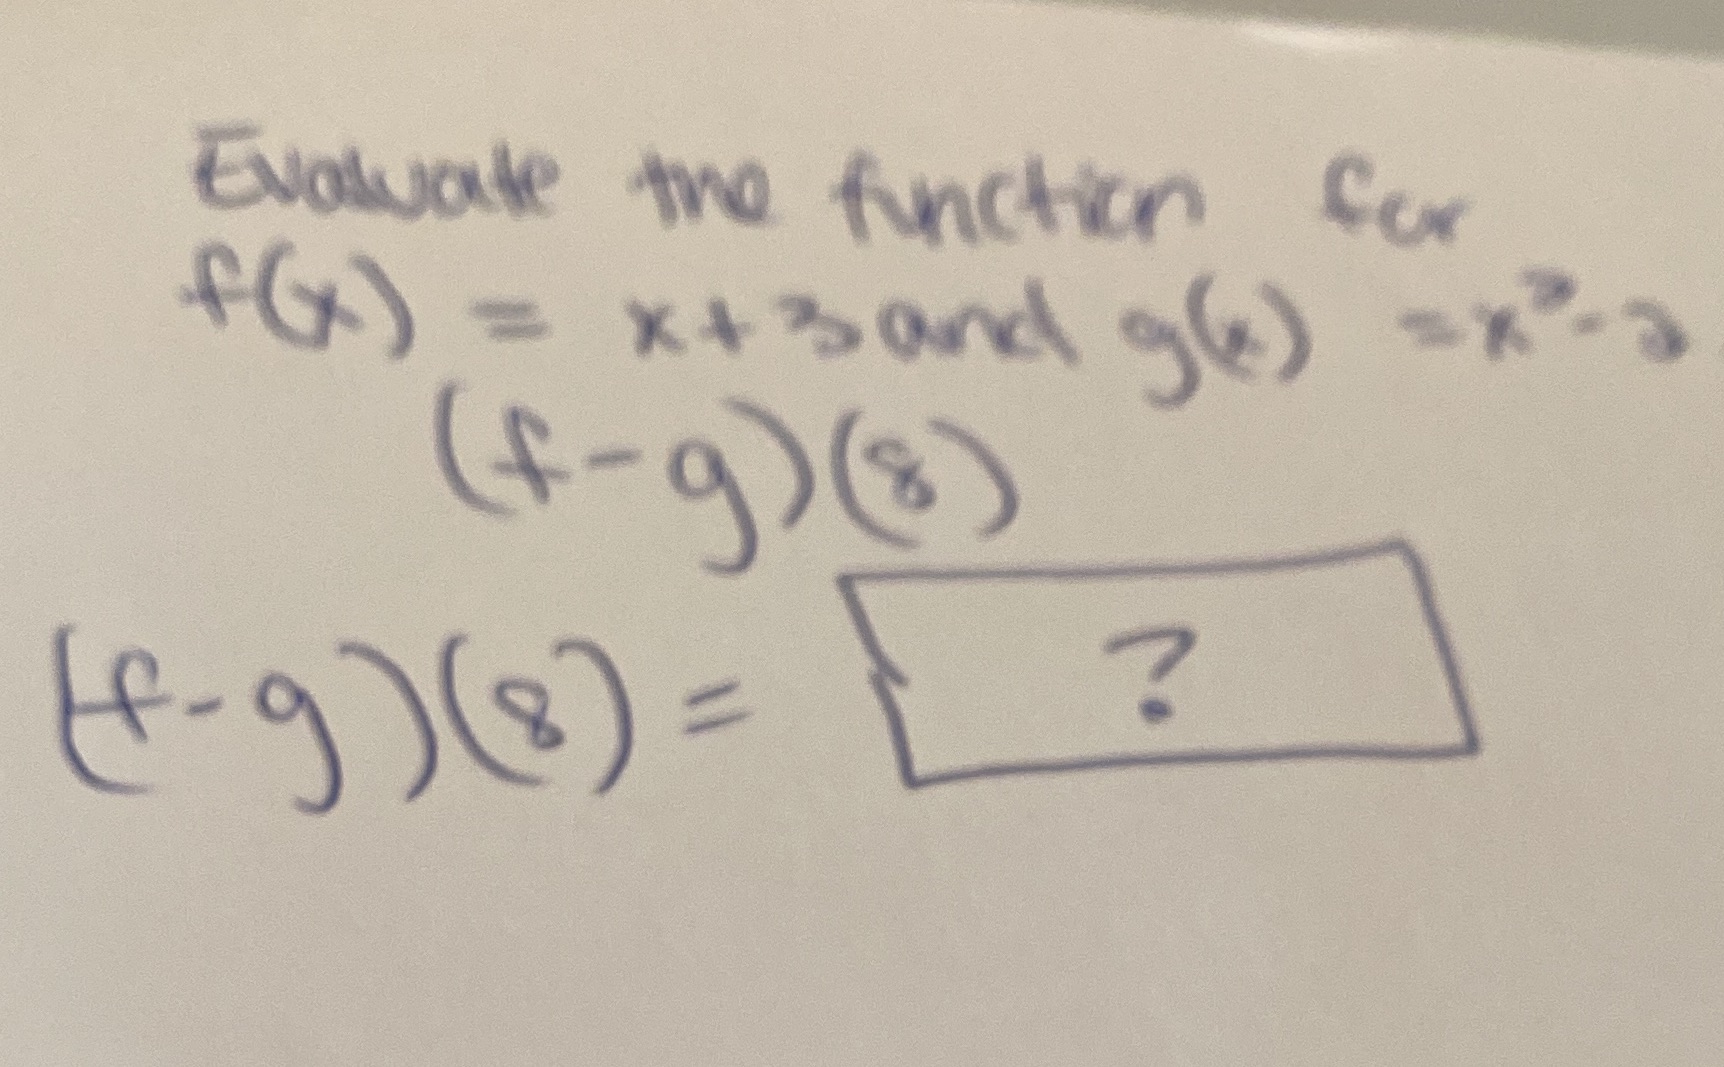 Evaluate the function for
f(x) = x+3 and g(x) = x²-2
(f-g)(8)
(f-g)(8) = ?